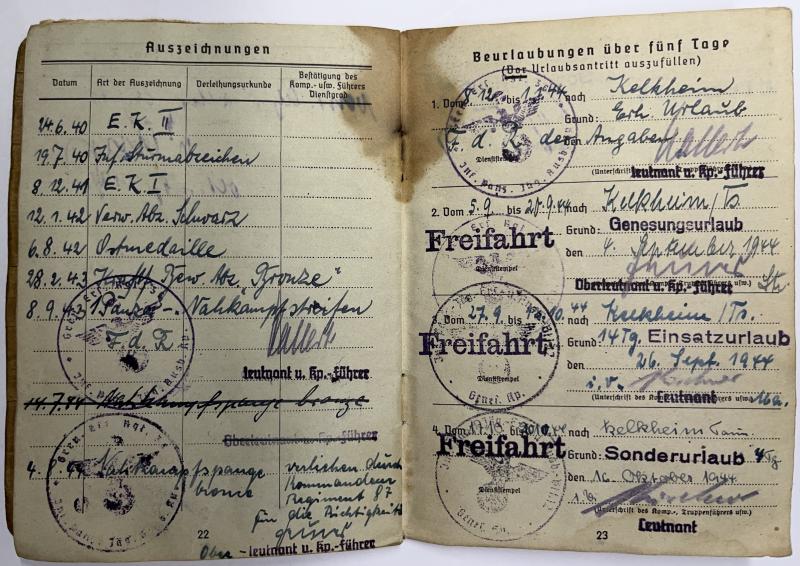 Auszeichnungen
Datum Art der Auszeichnung Verleihungsurkunde Bestätigung des Komp.- usw. Führers Dienstgrad
24.6.40 E.K. II
19.7.40 Inf. Sturmabzeichen
8.12.41 E.K. I
12.1.42 Verw. Abz. Schwarz
6.8.42 Ostmedaille
28.2.43 Kraftf. Bew. Abz. "Bronze"
8.9.43 1 Panzer- Nahkampfstreifen
F.d.R.
Leutnant u. Kp.-Führer
14.7.44 Nahkampfspange bronze
Oberleutnant u. Kp.-Führer
Nahkampfspange bronze
verliehen durch
Kommandeur
Regiment 87
Für die Richtigkeit
Ober - Leutnant u. Kp.-Führer
22
Beurlaubungen über fünf Tage
(Vor Urlaubsantritt auszufüllen)
1. Vom bis 44 nach Kelkheim
Grund: Erh. Urlaub
F.d.R. der Angaben
Dienststempel
Leutnant u. Kp.-Führer
2. Vom 5.9. bis 9.44 nach Kelkheim/Ts.
Freifahrt Grund: Genesungsurlaub
den 4. September 1944
Dienststempel
Oberleutnant u. Kp.-Führer
3. Vom 27.9. bis 10.44 nach Kelkheim/Ts.
Freifahrt Grund: 14 Tg. Einsatzurlaub
den 26. Sept. 1944
i.V.
Dienststempel
(Unterschrift des Komp.-, Truppenführers usw.)
Leutnant
4. Vom bis 44 nach Kelkheim
Freifahrt Grund: Sonderurlaub 4 Tg
den 16. Oktober 1944
Dienststempel
(Unterschrift des Komp.-, Truppenführers usw.)
Leutnant
23